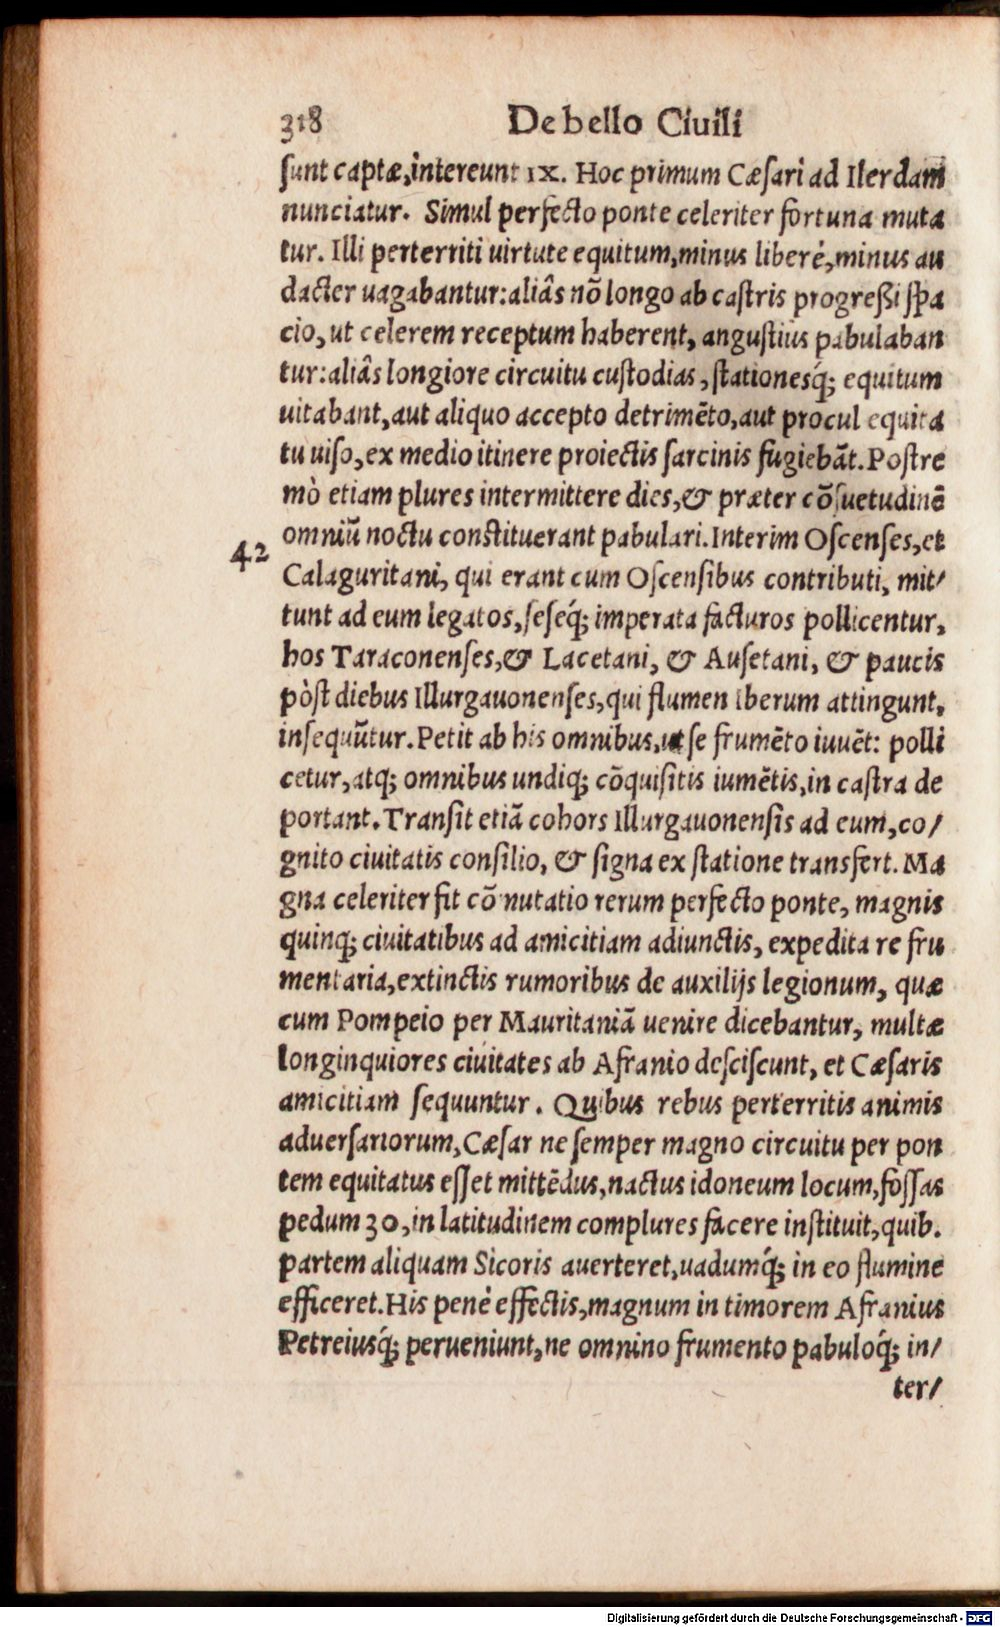 318 De bello Ciuili
ſunt captæ,intereunt IX. Hoc primum Cæſari ad Ilerdam
nunciatur. Simul perfecto ponte celeriter fortuna muta
tur. Illi perterriti uirtute equitum,minus liberè,minus au
dacter uagabantur:aliâs nō longo ab caſtris progreßi ſpa
cio, ut celerem receptum haberent, anguſtius pabulaban
tur:aliâs longiore circuitu cuſtodias, ſtationesq́; equitum
uitabant,aut aliquo accepto detrimēto,aut procul equita
tu uiſo, ex medio itinere proiectis ſarcinis fugiebāt. Poſtre
mò etiam plures intermittere dies,& præter cōſuetudinē
omniū noctu conſtituerant pabulari. Interim Oſcenſes,et
42
Calaguritani, qui erant cum Oſcenſibus contributi, mit/
tunt ad eum legatos, ſeſeq́; imperata facturos pollicentur,
hos Taraconenſes,& Lacetani, & Auſetani, & paucis
pòſt diebus Illurgauonenſes, qui flumen Iberum attingunt,
inſequūtur. Petit ab his omnibus,ut ſe frumēto iuuēt: polli
cetur, atq; omnibus undiq; cōquiſitis iumētis,in caſtra de
portant. Tranſit etiā cohors Illurgauonenſis ad eum,co/
gnito ciuitatis conſilio, & ſigna ex ſtatione transfert. Ma
gna celeriter fit cōmutatio rerum perfecto ponte, magnis
quinq; ciuitatibus ad amicitiam adiunctis, expedita re fru
mentaria,extinctis rumoribus de auxilijs legionum, quæ
cum Pompeio per Mauritaniā uenire dicebantur, multæ
longinquiores ciuitates ab Afranio deſciſcunt, et Cæſaris
amicitiam ſequuntur. Quibus rebus perterritis animis
aduerſariorum,Cæſar ne ſemper magno circuitu per pon
tem equitatus eſſet mittēdus,nactus idoneum locum,foſſas
pedum 30,in latitudinem complures facere inſtituit,quib.
partem aliquam Sicoris auerteret,uadumq́; in eo flumine
efficeret. His penè effectis,magnum in timorem Afranius
Petreiusq́; perueniunt,ne omnino frumento pabuloq́; in/
ter/
Digitalisierung gefördert durch die Deutsche Forschungsgemeinschaft - DFG